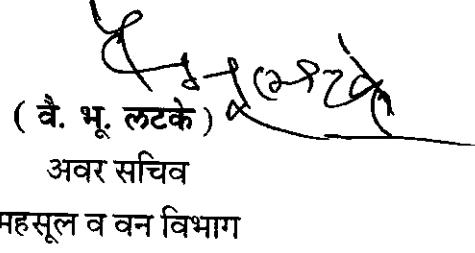 ( वै. भू. लटके )
अवर सचिव
महसूल व वन विभाग